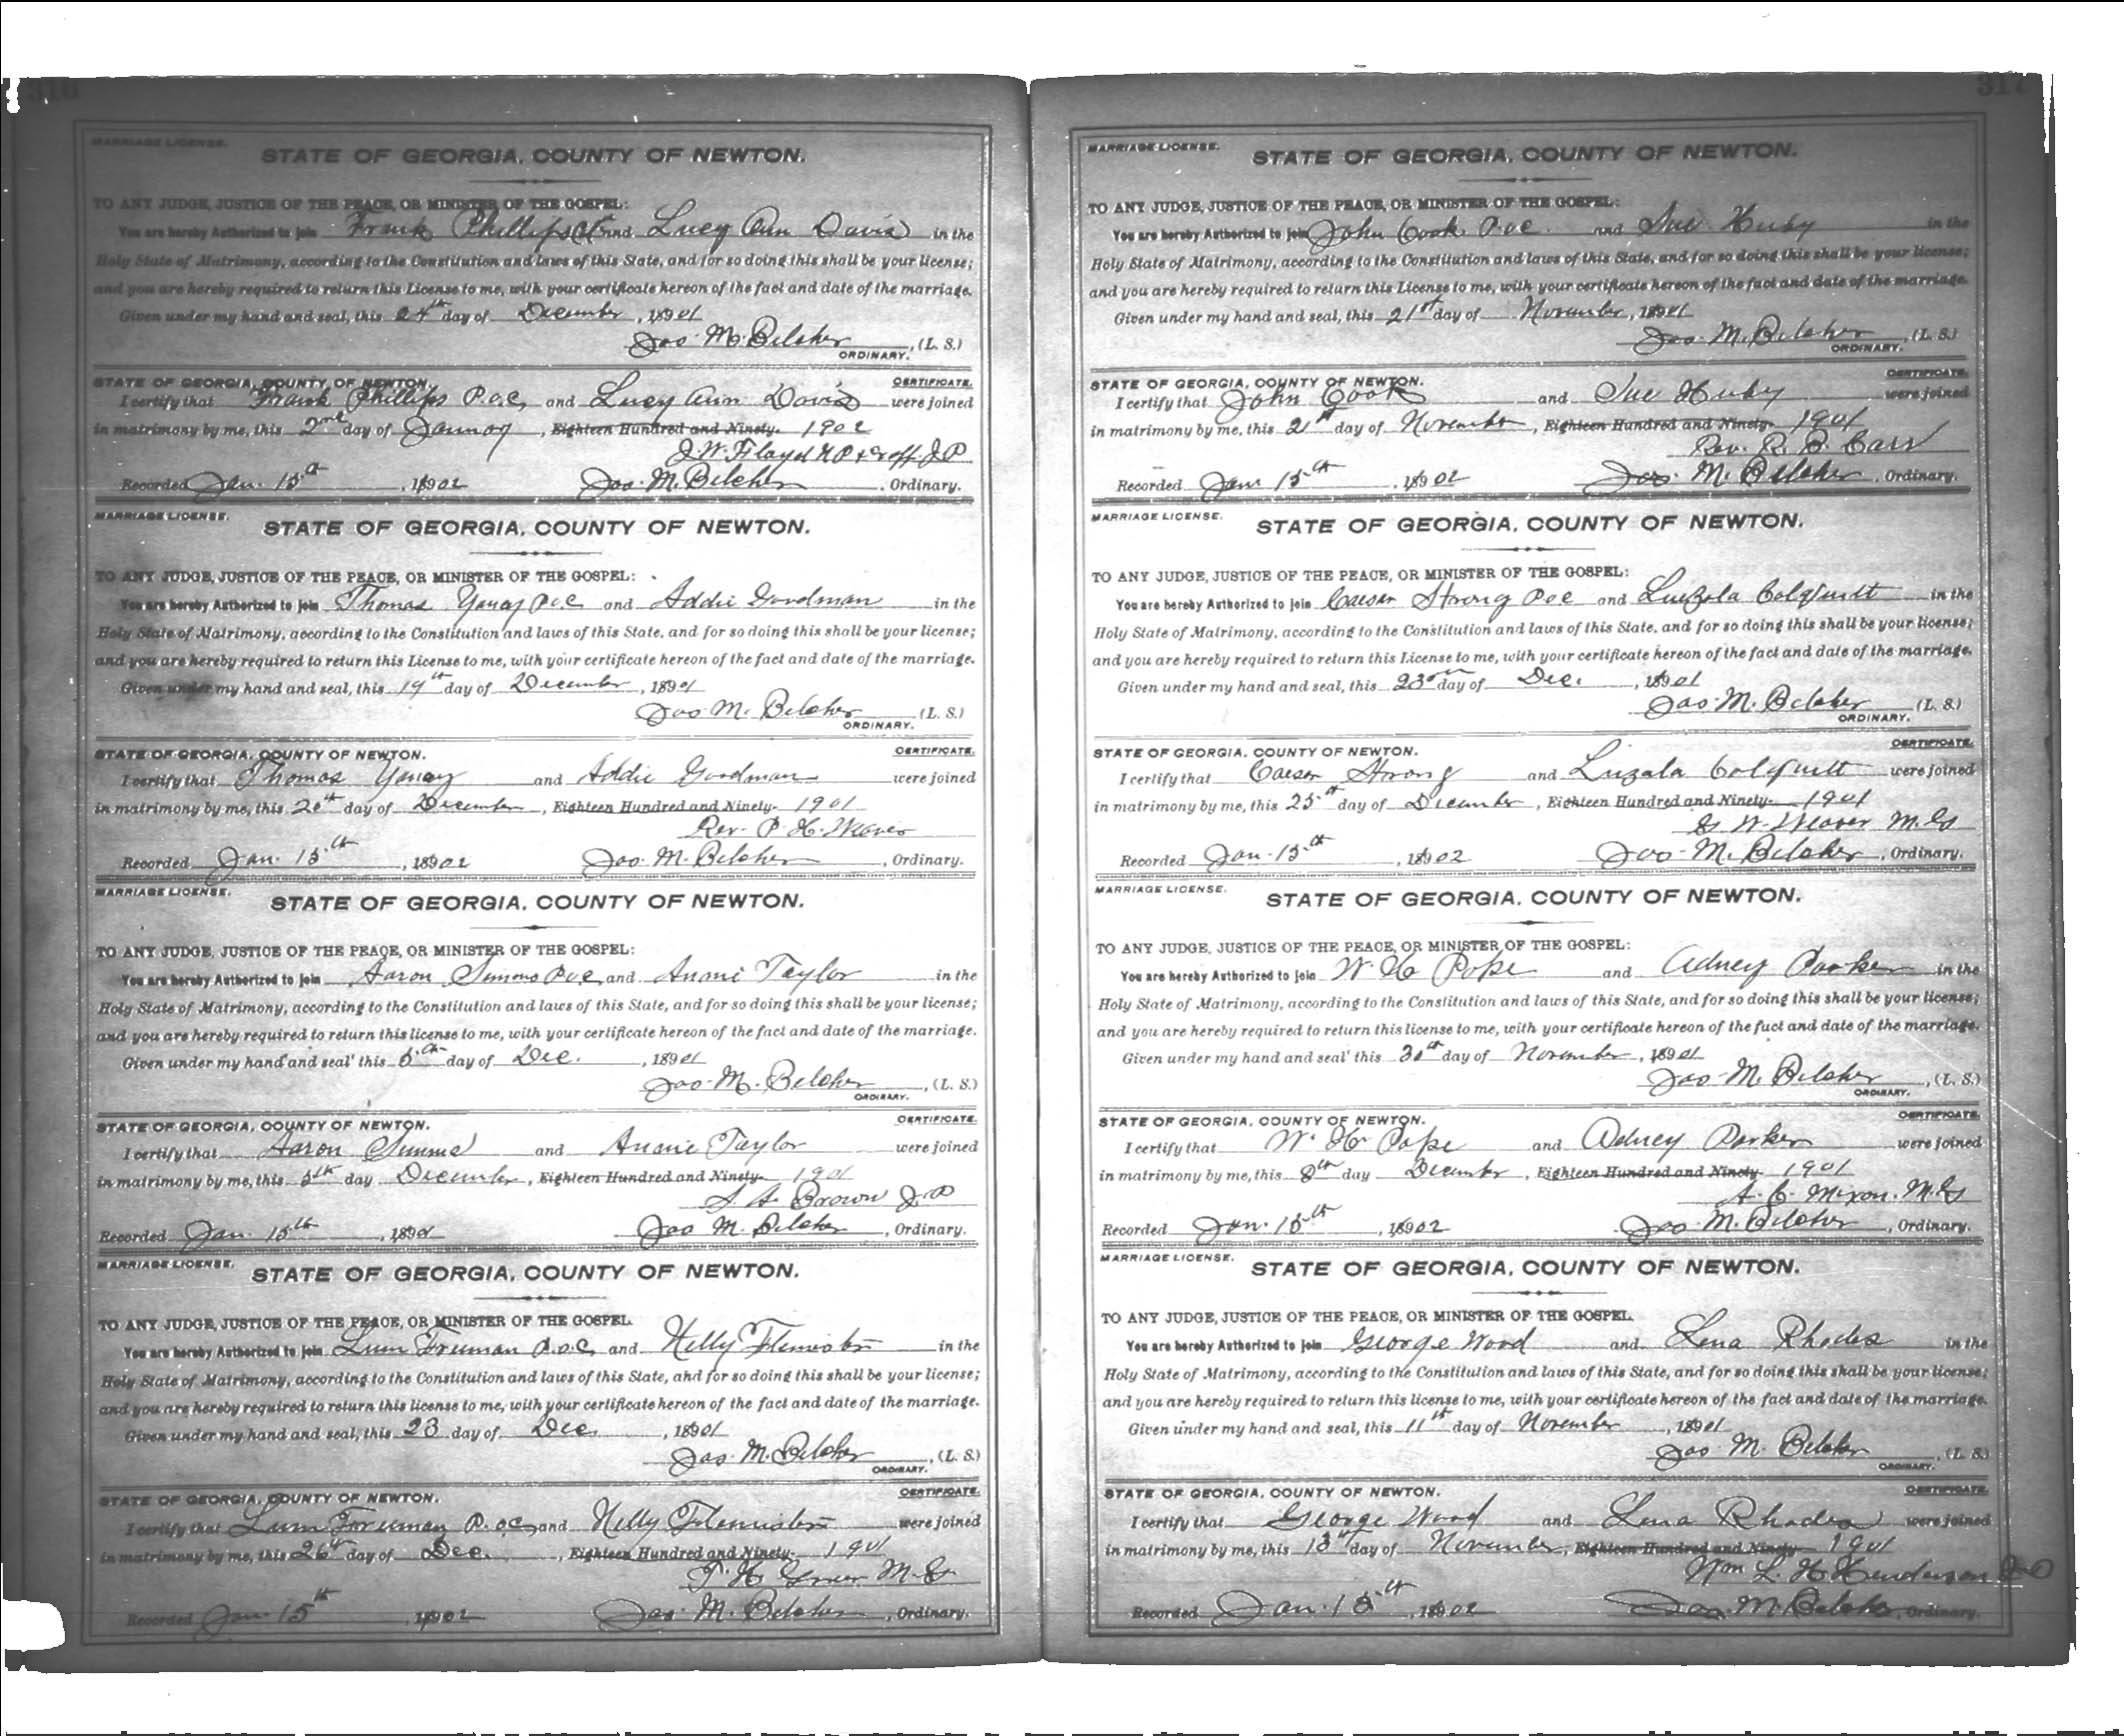 316
MARRIAGE LICENSE.
STATE OF GEORGIA, COUNTY OF NEWTON.
TO ANY JUDGE, JUSTICE OF THE PEACE, OR MINISTER OF THE GOSPEL:
You are hereby Authorized to join Frank Phillips and Lucy Ann Davis in the
Holy State of Matrimony, according to the Constitution and laws of this State, and for so doing this shall be your license;
and you are hereby required to return this License to me, with your certificate hereon of the fact and date of the marriage.
Given under my hand and seal, this 24th day of December, 1901
Jas. M. Belcher, (L. S.)
ORDINARY.
STATE OF GEORGIA, COUNTY OF NEWTON. CERTIFICATE.
I certify that Frank Phillips P.o.C. and Lucy Ann Davis were joined
in matrimony by me, this 2nd day of , Eighteen Hundred and Ninety- 1902
J. W. Floyd J P
Recorded Jan. 15th, 1902 Jas. M. Belcher, Ordinary.
MARRIAGE LICENSE.
STATE OF GEORGIA, COUNTY OF NEWTON.
TO ANY JUDGE, JUSTICE OF THE PEACE, OR MINISTER OF THE GOSPEL:
You are hereby Authorized to join Thomas Yancy P.o.C and Addie Goodman in the
Holy State of Matrimony, according to the Constitution and laws of this State, and for so doing this shall be your license;
and you are hereby required to return this License to me, with your certificate hereon of the fact and date of the marriage.
Given under my hand and seal, this 19th day of December, 1901
Jas. M. Belcher (L. S.)
ORDINARY.
STATE OF GEORGIA, COUNTY OF NEWTON. CERTIFICATE.
I certify that Thomas Yancy and Addie Goodman were joined
in matrimony by me, this 20th day of December, Eighteen Hundred and Ninety- 1901
Rev. P. H. Weaver
Recorded Jan. 15th, 1902 Jas. M. Belcher, Ordinary.
MARRIAGE LICENSE.
STATE OF GEORGIA, COUNTY OF NEWTON.
TO ANY JUDGE, JUSTICE OF THE PEACE, OR MINISTER OF THE GOSPEL:
You are hereby Authorized to join Aaron Simms P.o.C and Ananie Taylor in the
Holy State of Matrimony, according to the Constitution and laws of this State, and for so doing this shall be your license;
and you are hereby required to return this license to me, with your certificate hereon of the fact and date of the marriage.
Given under my hand and seal this 5th day of Dec., 1901
Jas. M. Belcher, (L. S.)
ORDINARY.
STATE OF GEORGIA, COUNTY OF NEWTON. CERTIFICATE.
I certify that Aaron Simms and Ananie Taylor were joined
in matrimony by me, this 5th day December, Eighteen Hundred and Ninety- 1901
S. A. Brown J. P
Recorded Jan. 15th, 1901 Jas. M. Belcher, Ordinary.
MARRIAGE LICENSE.
STATE OF GEORGIA, COUNTY OF NEWTON.
TO ANY JUDGE, JUSTICE OF THE PEACE, OR MINISTER OF THE GOSPEL.
You are hereby Authorized to join Lum Freeman P.o.C. and Nelly Flemister in the
Holy State of Matrimony, according to the Constitution and laws of this State, and for so doing this shall be your license;
and you are hereby required to return this license to me, with your certificate hereon of the fact and date of the marriage.
Given under my hand and seal, this 23 day of Dec., 1901
Jas. M. Belcher, (L. S.)
ORDINARY.
STATE OF GEORGIA, COUNTY OF NEWTON. CERTIFICATE.
I certify that Lum Freeman P.o.C. and Nelly Flemister were joined
in matrimony by me, this 26th day of Dec., Eighteen Hundred and Ninety- 1901
H. M. G
Recorded Jan. 15th, 1902 Jas. M. Belcher, Ordinary.
317
MARRIAGE LICENSE.
STATE OF GEORGIA, COUNTY OF NEWTON.
TO ANY JUDGE, JUSTICE OF THE PEACE, OR MINISTER OF THE GOSPEL:
You are hereby Authorized to join John Cook P.o.C. and Sue in the
Holy State of Matrimony, according to the Constitution and laws of this State, and for so doing this shall be your license;
and you are hereby required to return this License to me, with your certificate hereon of the fact and date of the marriage.
Given under my hand and seal, this 21st day of November, 1901
Jas. M. Belcher, (L. S.)
ORDINARY.
STATE OF GEORGIA, COUNTY OF NEWTON. CERTIFICATE.
I certify that John Cook and Sue were joined
in matrimony by me, this 21st day of November, Eighteen Hundred and Ninety- 1901
Rev. R. B. Carr
Recorded Jan 15th, 1902 Jas. M. Belcher, Ordinary.
MARRIAGE LICENSE.
STATE OF GEORGIA, COUNTY OF NEWTON.
TO ANY JUDGE, JUSTICE OF THE PEACE, OR MINISTER OF THE GOSPEL:
You are hereby Authorized to join Caeser Strong P.o.C and Luizola Colquitt in the
Holy State of Matrimony, according to the Constitution and laws of this State, and for so doing this shall be your license;
and you are hereby required to return this License to me, with your certificate hereon of the fact and date of the marriage.
Given under my hand and seal, this 23 day of Dec., 1901
Jas. M. Belcher (L. S.)
ORDINARY.
STATE OF GEORGIA, COUNTY OF NEWTON. CERTIFICATE.
I certify that Caeser Strong and Luizala Colquitt were joined
in matrimony by me, this 25th day of December, Eighteen Hundred and Ninety- 1901
G. W. Weaver M.G
Recorded Jan. 15th, 1902 Jas. M. Belcher, Ordinary.
MARRIAGE LICENSE.
STATE OF GEORGIA, COUNTY OF NEWTON.
TO ANY JUDGE, JUSTICE OF THE PEACE, OR MINISTER OF THE GOSPEL:
You are hereby Authorized to join W. H. Pope and Adney Parker in the
Holy State of Matrimony, according to the Constitution and laws of this State, and for so doing this shall be your license;
and you are hereby required to return this license to me, with your certificate hereon of the fact and date of the marriage.
Given under my hand and seal this 30th day of November, 1901
Jas. M. Belcher, (L. S.)
ORDINARY.
STATE OF GEORGIA, COUNTY OF NEWTON. CERTIFICATE.
I certify that W. H. Pope and Adney Parker were joined
in matrimony by me, this 8th day December, Eighteen Hundred and Ninety- 1901
A. C. Mixon. M.G
Recorded Jan. 15th, 1902 Jas. M. Belcher, Ordinary.
MARRIAGE LICENSE.
STATE OF GEORGIA, COUNTY OF NEWTON.
TO ANY JUDGE, JUSTICE OF THE PEACE, OR MINISTER OF THE GOSPEL.
You are hereby Authorized to join George Wood and Lena Rhodes in the
Holy State of Matrimony, according to the Constitution and laws of this State, and for so doing this shall be your license;
and you are hereby required to return this license to me, with your certificate hereon of the fact and date of the marriage.
Given under my hand and seal, this 11th day of November, 1901
Jas. M. Belcher, (L. S.)
ORDINARY.
STATE OF GEORGIA, COUNTY OF NEWTON. CERTIFICATE.
I certify that George Wood and Lena Rhodes were joined
in matrimony by me, this 13th day of November, Eighteen Hundred and Ninety- 1901
Wm. L. H. Henderson
Recorded Jan. 15th, 1902 Jas. M. Belcher, Ordinary.